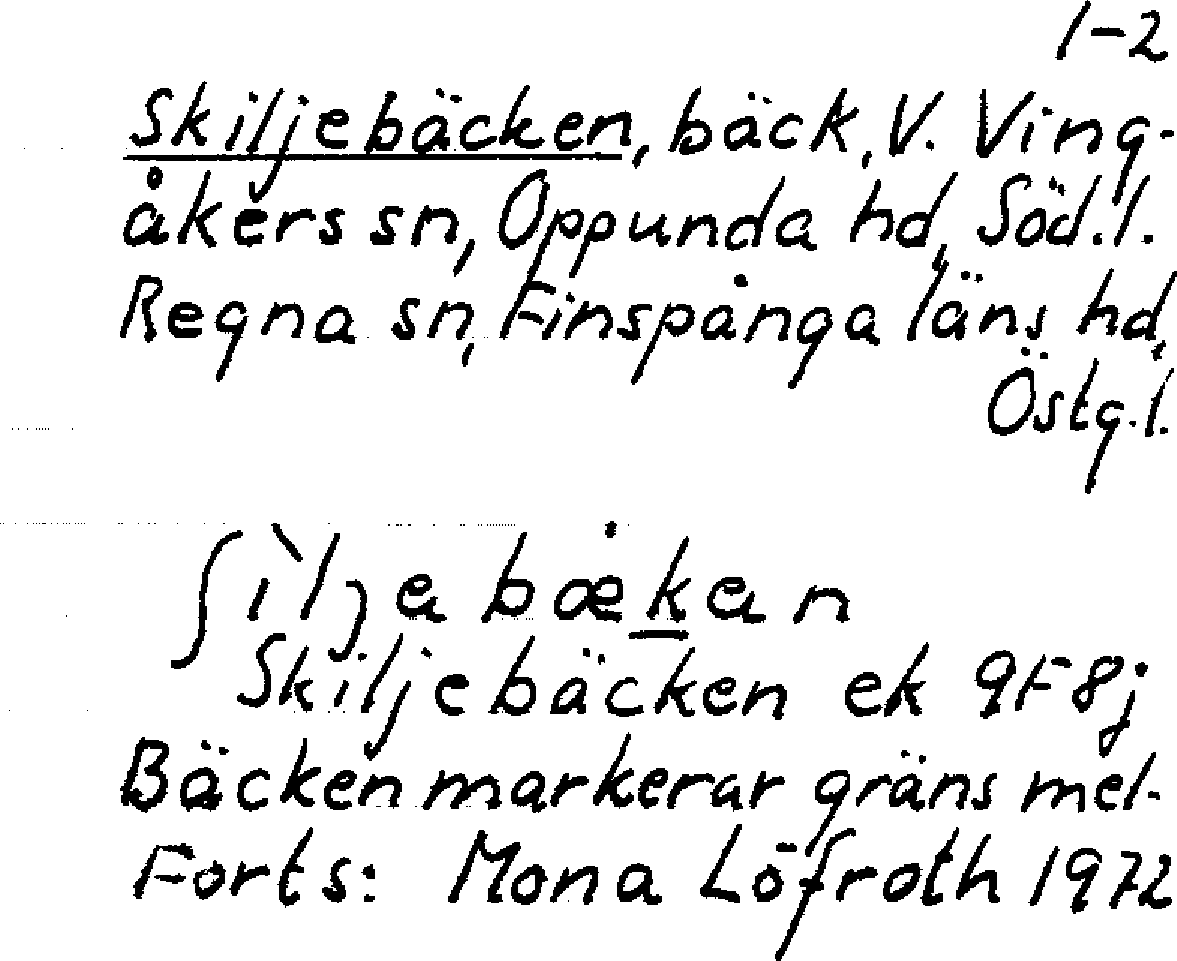 1-2
Skiljebäcken, bäck, V. Ving-
åkers sn, Oppunda hd, Söd.l.
Regna sn, Finspånga läns hd,
Östg.l.
ʃìljɐ bœ̇kɐn
Skiljebäcken ek 9F8j
Bäcken markerar gräns mel-
Forts: Mona Löfroth 1972